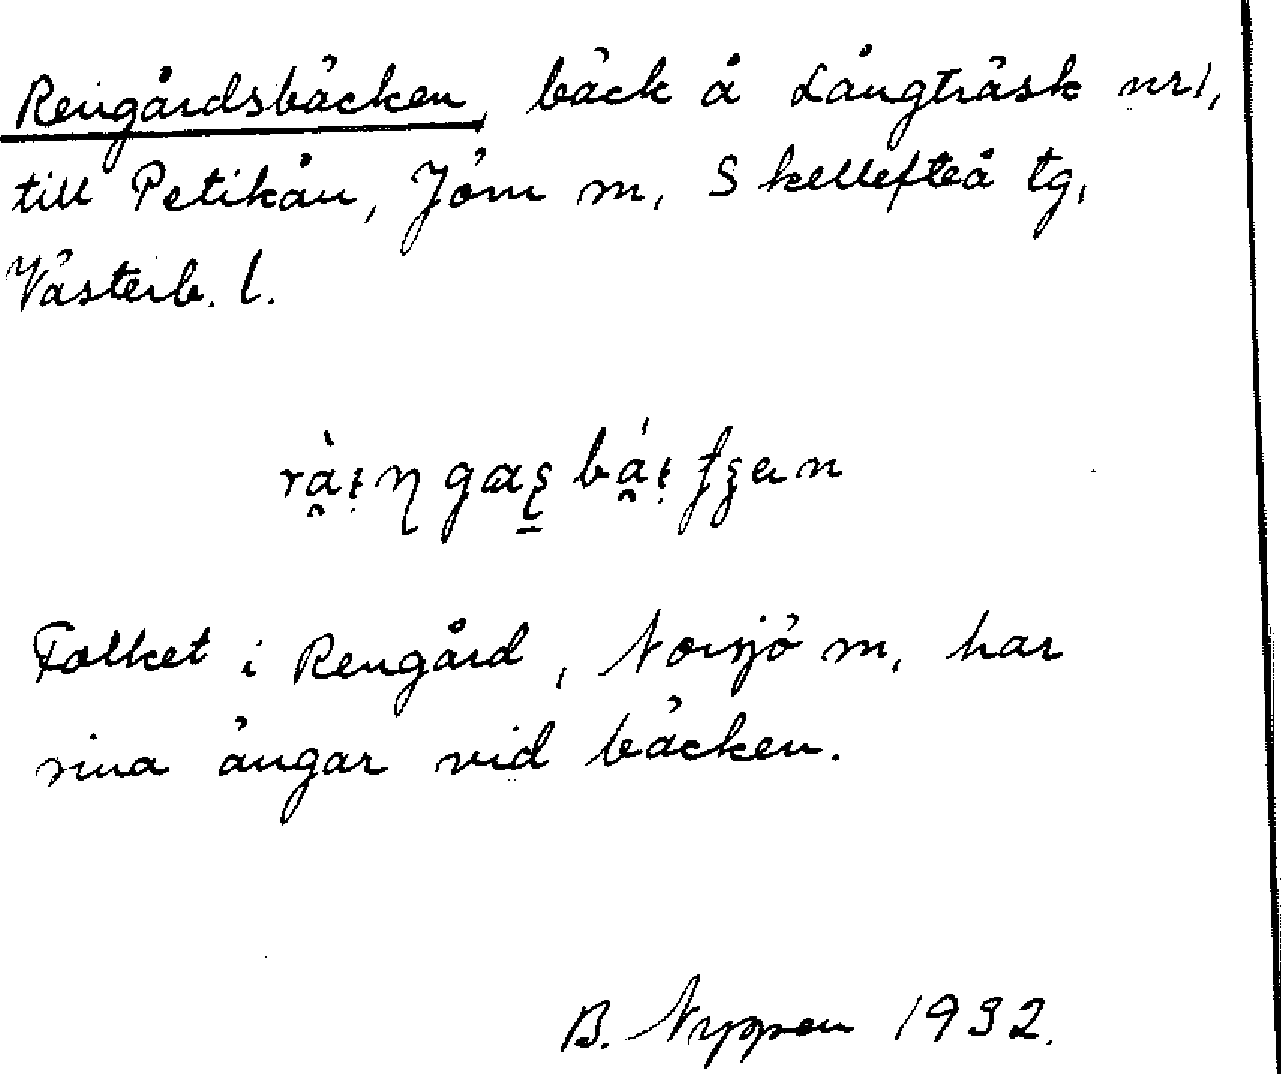 Rengårdsbäcken, bäck å Långträsk nr 1,
till Petikån, Jörn m, Skellefteå tg,
Västerb. l.
Folket i Rengård, Norsjö m, har
sina ängar vid bäcken.
B. Nyppen 1932.